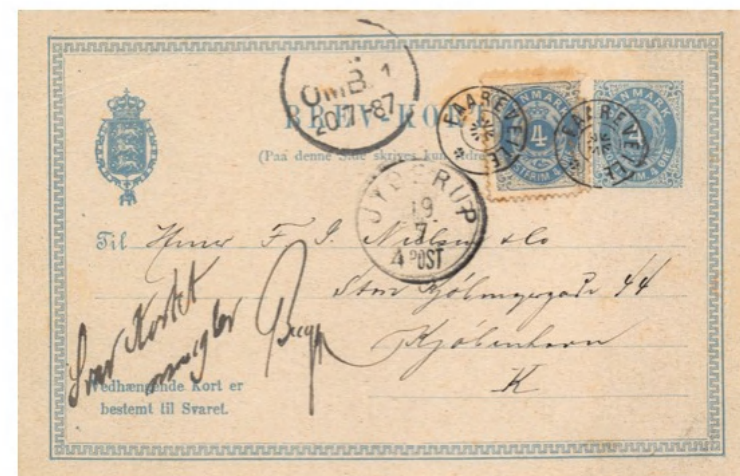 OMB. 1
20 7 87
BREVKORT
(Paa denne Side skrives kun Adre
4
DANMARK
POSTFRIM 4 ØRE
FAAREVEILE
FAAREVEILE
JYDERUP
19
7
4 POST
Til Herr F. J. Nielsen & Co
Store Kjöbmagergade 44
Kjöbenhavn
K
Svar Kortet
mangler
Vedhængende Kort er
bestemt til Svaret.